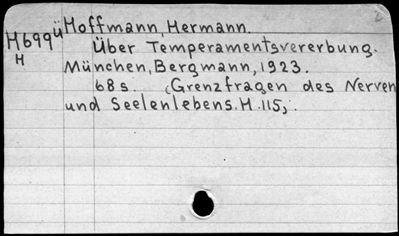 Hoffmann, Hermann.
H699ü
H
Über Temperamentsvererbung.
München, Bergmann, 1923.
68 s. (Grenzfragen des Nerven
und Seelenlebens. H. 115,